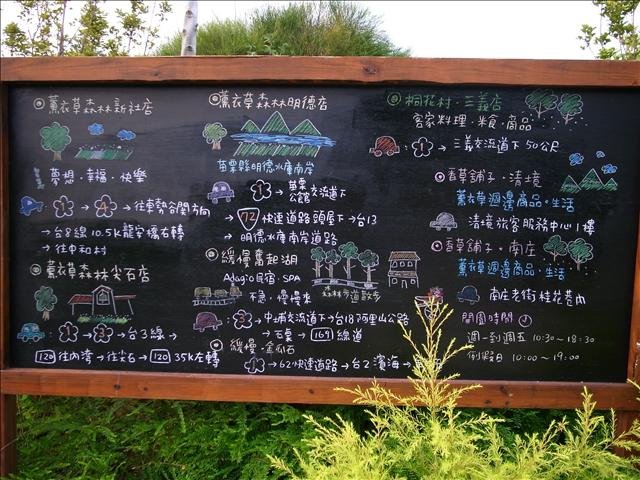 薰衣草森林新社店
夢想·幸福·快樂
往東勢谷關方向
→台8線 10.5K龍安橋右轉
→往中和村
薰衣草森林尖石店
1→3→台3線→
120往內灣→往尖石→120 35K左轉
薰衣草森林明德店
苗栗縣明德水庫南岸
1 苗栗公館交流道下
→72快速道路頭屋下→台13
→明德水庫南岸道路
緩慢奮起湖
Adagio民宿·SPA
不急·慢慢來
森林步道散步
3→中埔交流道下→台18阿里山公路
→石桌→169線道
緩慢·金瓜石
1→62快速道路→台2濱海→
桐花村·三義店
客家料理·粄食·商品
1→三義交流道下50公尺
香草舖子·清境
薰衣草週邊商品·生活
清境旅客服務中心1樓
香草舖子·南庄
薰衣草週邊商品·生活
南庄老街桂花巷內
開園時間
週一到週五 10:30~18:30
例假日 10:00~19:00